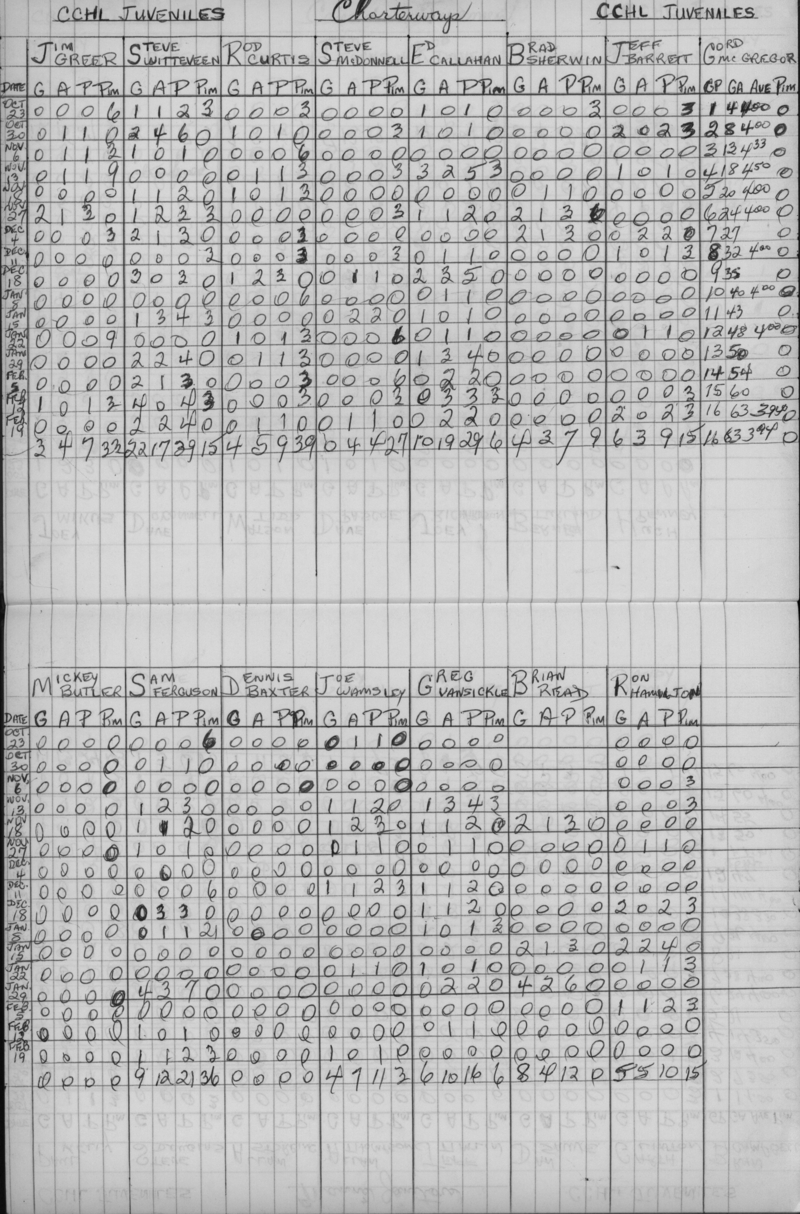 CCHL JUVENILES Charterways CCHL JUVENALES
JIM GREER STEVE WITTEVEEN ROD CURTIS STEVE McDONNELL ED CALLAHAN BRAD SHERWIN JEFF BARRETT GORD McGREGOR
DATE G A P Pim G A P Pim G A P Pim G A P Pim G A P Pim G A P Pim G A P Pim GP GA AVE Pim
OCT 23 0 0 0 6 1 1 2 3 0 0 0 3 0 0 0 0 1 0 1 0 0 0 0 3 0 0 0 3 1 4 400 0
OCT 30 0 1 1 0 2 4 6 0 1 0 1 0 0 0 0 3 1 0 1 0 0 0 0 0 2 0 2 3 2 8 400 0
NOV 6 0 1 1 3 1 0 1 0 0 0 0 6 0 0 0 0 0 0 0 0 0 0 0 0 0 0 0 0 3 13 433 0
NOV 13 0 1 1 9 0 0 0 0 0 1 1 3 0 0 0 3 3 2 5 3 0 0 0 0 1 0 1 0 4 18 450 0
NOV 0 0 0 0 1 1 2 0 1 0 1 3 0 0 0 0 0 0 0 0 0 1 1 0 0 0 0 0 5 20 400 0
NOV 27 2 1 3 0 1 2 3 3 0 0 0 0 0 0 0 3 1 1 2 0 2 1 3 6 0 0 0 0 6 24 400 0
DEC 4 0 0 0 3 2 1 3 0 0 0 0 3 0 0 0 0 0 0 0 0 2 1 3 0 0 2 2 0 7 27 0
DEC 11 0 0 0 0 0 0 0 3 0 0 0 3 0 0 0 3 0 1 1 0 0 0 0 0 1 0 1 3 8 32 400 0
DEC 18 0 0 0 0 3 0 3 0 1 2 3 0 0 1 1 0 2 3 5 0 0 0 0 0 0 0 0 0 9 35 0
JAN 8 0 0 0 0 0 0 0 0 0 0 0 6 0 0 0 0 0 1 1 0 0 0 0 0 0 0 0 0 10 40 400 0
JAN 15 0 0 0 0 1 3 4 3 0 0 0 0 0 2 2 0 1 0 1 0 0 0 0 0 0 0 0 0 11 43 0
JAN 22 0 0 0 9 0 0 0 0 1 0 1 3 0 0 0 6 0 1 1 0 0 0 0 0 0 1 1 0 12 48 400 0
JAN 29 0 0 0 0 2 2 4 0 0 1 1 3 0 0 0 0 1 3 4 0 0 0 0 0 0 0 0 0 13 50 0
FEB 5 0 0 0 0 2 1 3 0 0 0 0 3 0 0 0 6 0 2 2 0 0 0 0 0 0 0 0 0 14 54 0
FEB 12 1 0 1 3 4 0 4 3 0 0 0 3 0 0 0 3 0 3 3 3 0 0 0 0 0 0 0 3 15 60 0
FEB 19 0 0 0 0 2 2 4 0 0 1 1 0 0 1 1 0 0 2 2 0 0 0 0 0 2 0 2 3 16 63 394 0
3 4 7 33 22 17 39 15 4 5 9 39 0 4 4 27 10 19 29 6 4 3 7 9 6 3 9 15 16 63 394 0
MICKEY BUTLER SAM FERGUSON DENNIS BAXTER JOE WAMSLEY GREG VANSICKLE BRIAN READ RON HAMILTON
DATE G A P Pim G A P Pim G A P Pim G A P Pim G A P Pim G A P Pim G A P Pim
OCT 23 0 0 0 0 0 0 0 6 0 0 0 0 0 1 1 0 0 0 0 0 0 0 0 0
OCT 30 0 0 0 0 0 1 1 0 0 0 0 0 0 0 0 0 0 0 0 0 0 0 0 0
NOV 6 0 0 0 0 0 0 0 0 0 0 0 0 0 0 0 0 0 0 0 0 0 0 0 3
NOV 13 0 0 0 0 1 2 3 0 0 0 0 0 1 1 2 0 1 3 4 3 0 0 0 3
NOV 18 0 0 0 0 1 1 2 0 0 0 0 0 1 2 3 0 1 1 2 0 2 1 3 0 0 0 0 0
NOV 27 0 0 0 0 1 0 1 0 0 0 0 0 0 1 1 0 0 1 1 0 0 0 0 0 0 1 1 0
DEC 4 0 0 0 0 0 0 0 0 0 0 0 0 0 0 0 0 0 0 0 0 0 0 0 0 0 0 0 0
DEC 11 0 0 0 0 0 0 0 6 0 0 0 0 1 1 2 3 1 1 2 0 0 0 0 0 0 0 0 0
DEC 18 0 0 0 0 0 3 3 0 0 0 0 0 0 0 0 0 1 1 2 0 0 0 0 0 2 0 2 3
JAN 8 0 0 0 0 0 1 1 21 0 0 0 0 0 0 0 0 1 0 1 3 0 0 0 0 0 0 0 0
JAN 15 0 0 0 0 0 0 0 0 0 0 0 0 0 0 0 0 0 0 0 0 2 1 3 0 2 2 4 0
JAN 22 0 0 0 0 0 0 0 0 0 0 0 0 0 1 1 0 1 0 1 0 0 0 0 0 0 1 1 3
JAN 29 0 0 0 0 4 3 7 0 0 0 0 0 0 0 0 0 0 2 2 0 4 2 6 0 0 0 0 0
FEB 5 0 0 0 0 0 0 0 0 0 0 0 0 0 0 0 0 0 0 0 0 0 0 0 0 1 1 2 3
FEB 12 0 0 0 0 1 0 1 0 0 0 0 0 0 0 0 0 0 1 1 0 0 0 0 0 0 0 0 0
FEB 19 0 0 0 0 1 1 2 3 0 0 0 0 1 0 1 0 0 0 0 0 0 0 0 0 0 0 0 0
0 0 0 0 9 12 21 36 0 0 0 0 4 7 11 3 6 10 16 6 8 4 12 0 5 5 10 15